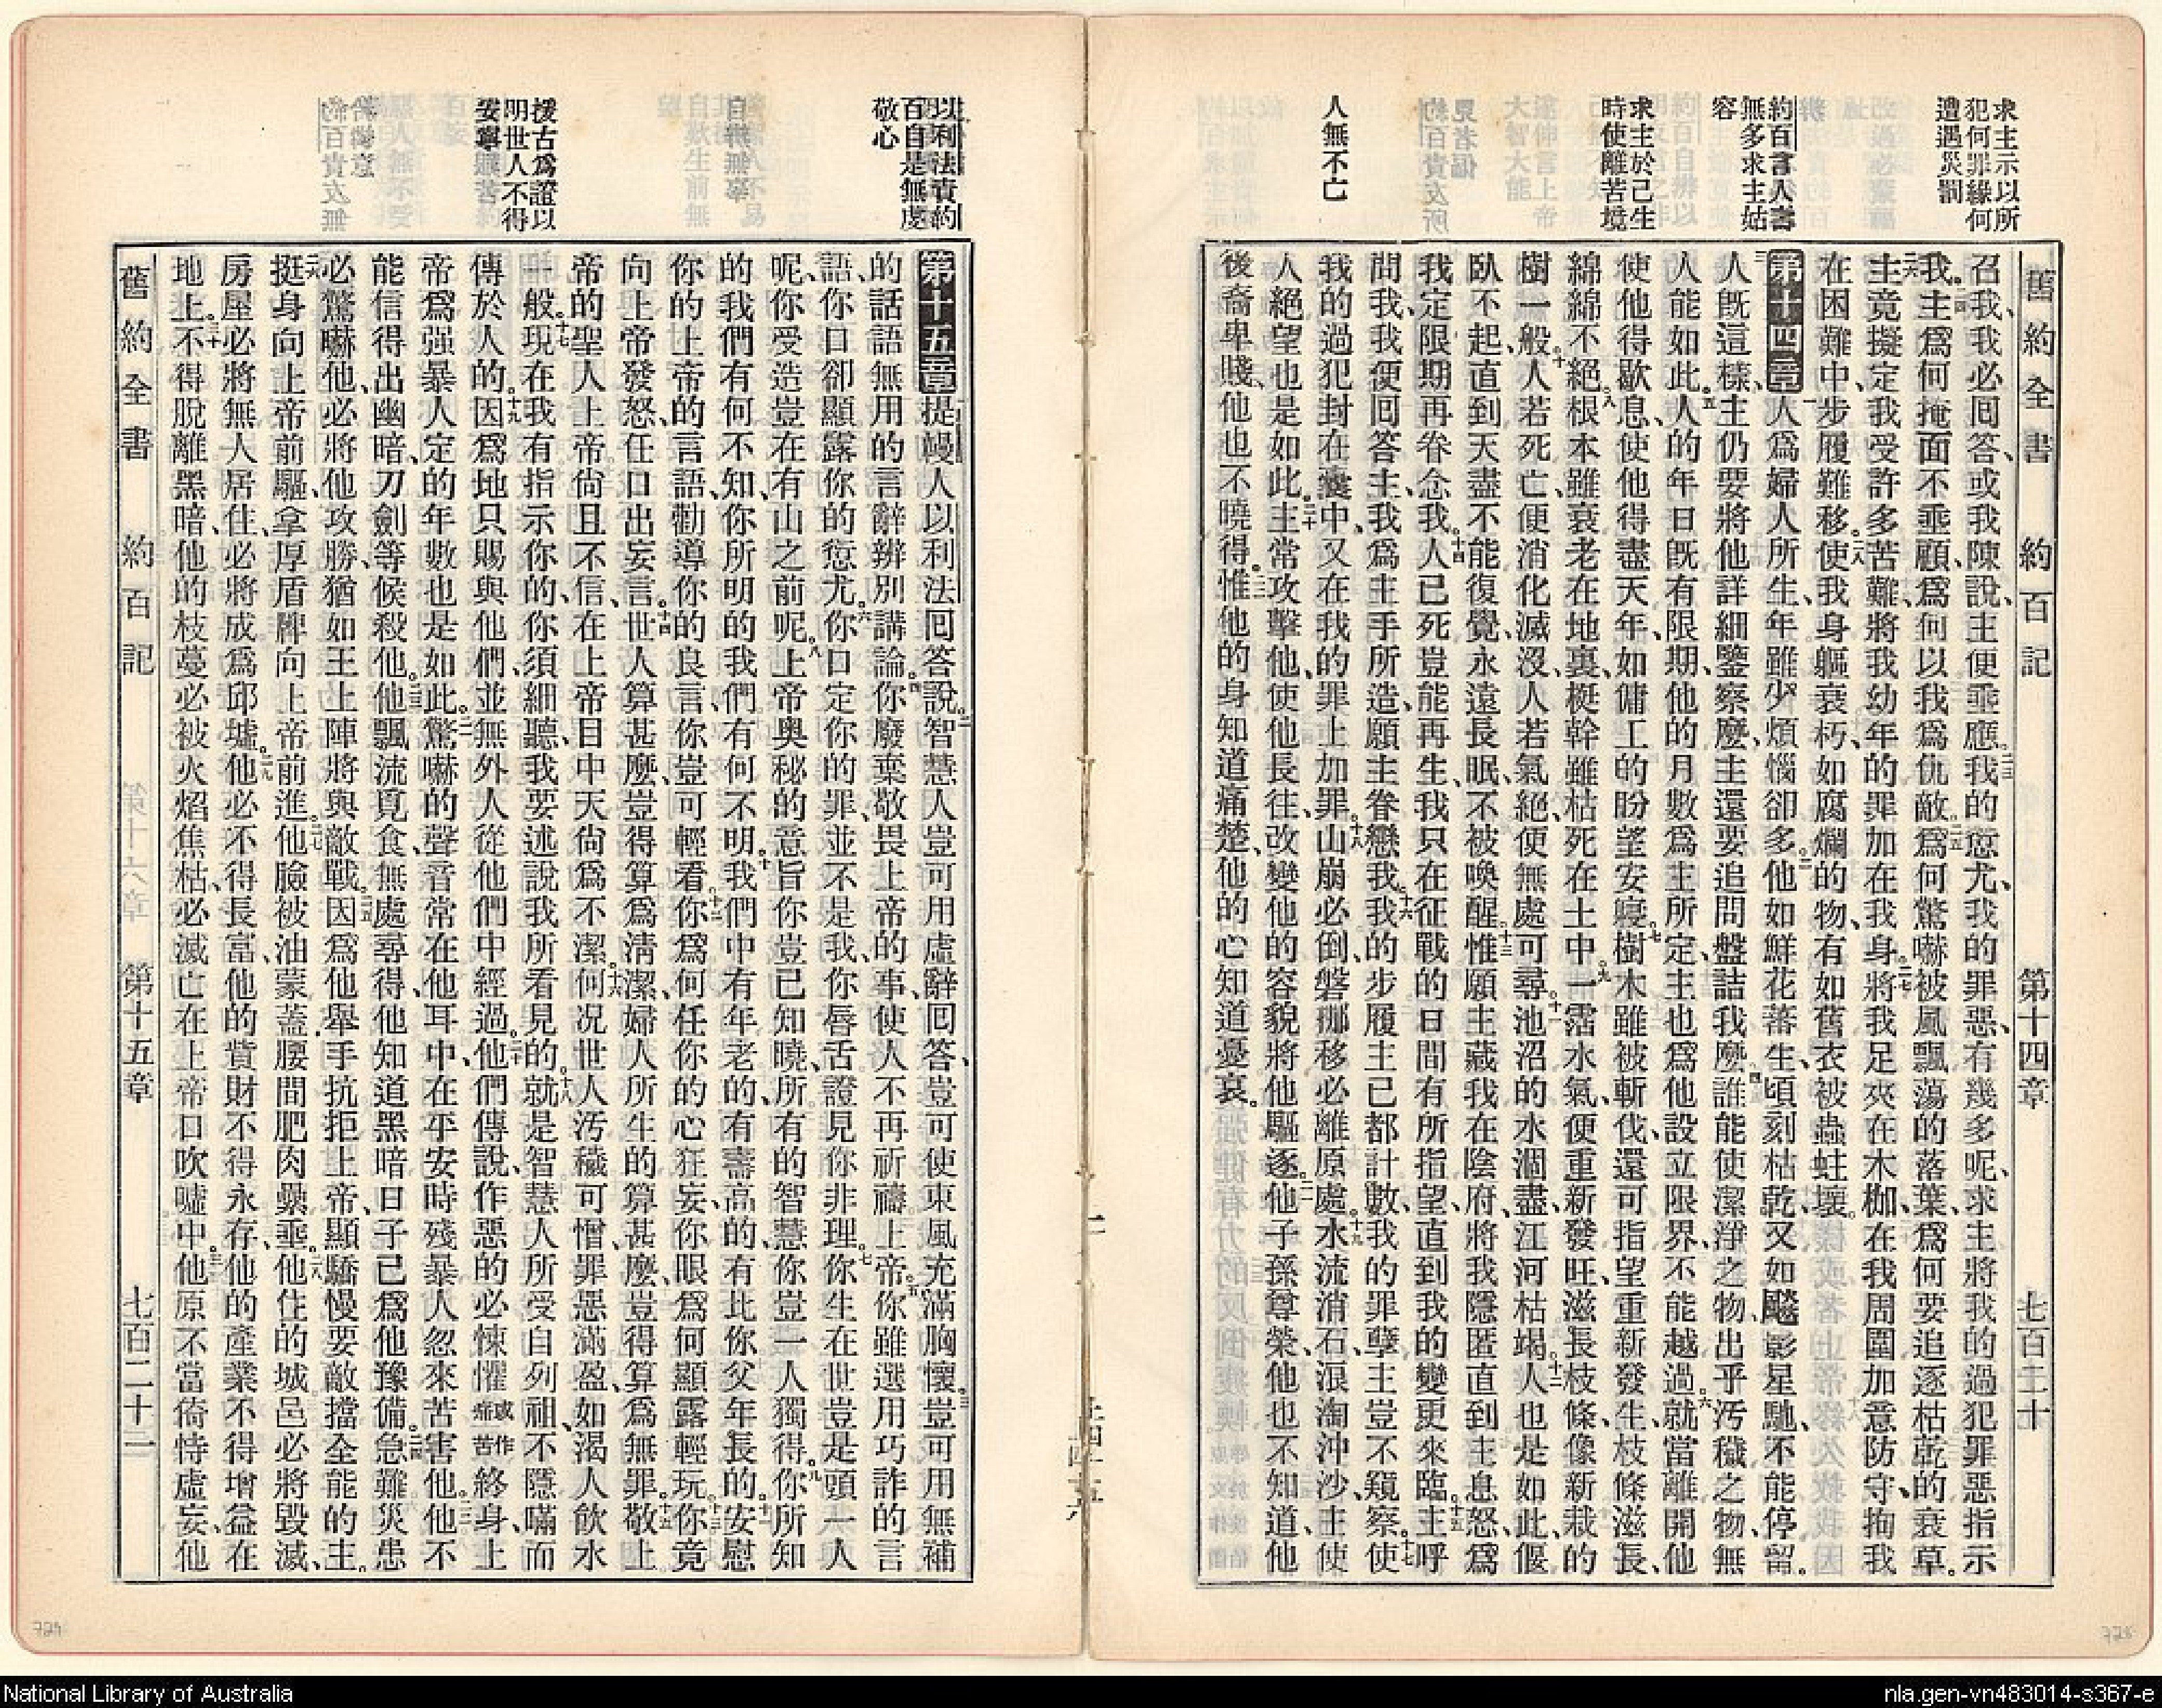 舊約全書 約百記 第十四章 七百二十
求主示以所
犯何罪緣何
遭遇災罰
約百言人壽
無多求主姑
容
求主於己生
時使離苦境
人無不亡
召我、我必囘答、或我陳說、主便垂應。二三我的愆尤、我的罪惡、有幾多呢、求主將我的過犯罪惡指示
我。二四主爲何掩面不垂顧、爲何以我爲仇敵。二五爲何驚嚇被風飄蕩的落葉、爲何要追逐枯乾的衰草。
二六主竟擬定我受許多苦難、將我幼年的罪加在我身。二七將我足夾在木枷、在我周圍加意防守、拘我
在困難中、步履難移。二八使我身軀衰朽、如腐爛的物、有如舊衣被蟲蛀壞。
第十四章 一人爲婦人所生、年雖少、煩惱卻多。二他如鮮花蕃生、頃刻枯乾、又如飈影星馳、不能停留。
三人旣這樣、主仍要將他詳細鑒察麼、主還要追問盤詰我麼。四誰能使潔淨之物、出乎汚穢之物、無
人能如此。五人的年日旣有限期、他的月數爲主所定、主也爲他設立限界、不能越過。六就當離開他
使他得歇息、使他得盡天年、如傭工的盼望安寢。七樹木雖被斬伐、還可指望重新發生、枝條滋長、
綿綿不絕。八根本雖衰老在地裏、梃幹雖枯死在土中。九一霑水氣、便重新發旺、滋長枝條、像新栽的
樹一般。十人若死亡、便消化滅沒、人若氣絕、便無處可尋。十一池沼的水涸盡、江河枯竭。十二人也是如此、偃
臥不起、直到天盡、不能復覺、永遠長眠、不被喚醒。十三惟願主藏我在陰府、將我隱匿、直到主息怒、爲
我定限期、再眷念我。十四人已死、豈能再生、我只在征戰的日間、有所指望、直到我的變更來臨。十五主呼
問我、我便囘答主、我爲主手所造、願主眷戀我。十六我的步履、主已都計數、我的罪孽、主豈不窺察。十七使
我的過犯、封在囊中、又在我的罪上加罪。十八山崩必倒、磐挪移必離原處。十九水流消石、浪淘沖沙、主使
人絕望也是如此。二十主常攻擊他、使他長往、改變他的容貌、將他驅逐。二一他子孫尊榮、他也不知道、他
後裔卑賤、他也不曉得。二二惟他的身知道痛楚、他的心知道憂哀。
以利法責約
百自是無虔
敬心
自辨無辜
援古爲證以
明世人不得
安寧
第十五章 一提幔人以利法囘答說。二智慧人豈可用虛辭囘答、豈可使東風充滿胸懷。三豈可用無補
的話語、無用的言辭、辨別講論。四你廢棄敬畏上帝的事、使人不再祈禱上帝。五你雖選用巧詐的言
語、你口卻顯露你的愆尤。六你口定你的罪、並不是我、你唇舌證見你非理。七你生在世、豈是頭一人
呢、你受造豈在有山之前呢。八上帝奧秘的意旨、你豈已知曉、所有的智慧、你豈一人獨得。九你所知
的、我們有何不知、你所明的、我們有何不明。十我們中有年老的、有壽高的、有比你父年長的。十一安慰
你的上帝的言語、勸導你的良言、你豈可輕看。十二你爲何任你的心狂妄、你眼爲何顯露輕玩。十三你竟
向上帝發怒、任口出妄言。十四世人算甚麼、豈得算爲淸潔、婦人所生的算甚麼、豈得算爲無罪。十五敬上
帝的聖人、上帝尙且不信、在上帝目中、天尙爲不潔。十六何況世人、汚穢可憎、罪惡滿盈、如渴人飲水
一般。十七現在我有指示你的、你須細聽、我要述說我所看見的。十八就是智慧人所受自列祖、不隱瞞而
傳於人的。十九因爲地只賜與他們、並無外人從他們中經過。二十他們傳說、作惡的必悚懼或作痛苦終身、上
帝爲强暴人定的年數、也是如此。二一驚嚇的聲音、常在他耳中、在平安時、殘暴人忽來苦害他。二二他不
能信得出幽暗、刀劍等候殺他。二三他飄流覓食、無處尋得、他知道黑暗日子、已爲他豫備。二四急難災患
必驚嚇他、必將他攻勝、猶如王上陣將與敵戰。二五因爲他舉手抗拒上帝、顯驕慢、要敵擋全能的主。
二六挺身向上帝前驅、拿厚盾牌向上帝前進。二七他臉被油蒙蓋、腰間肥肉纍垂。二八他住的城邑、必將毀滅、
房屋必將無人居住、必將成爲邱墟。二九他必不得長富、他的貲財不得永存、他的產業不得增益在
地上。三十不得脫離黑暗、他的枝蔓必被火焰焦枯、必滅亡在上帝口吹噓中。三一他原不當倚恃虛妄、他
舊約全書 約百記 第十五章 七百二十一
National Library of Australia
nla.gen-vn483014-s367-e